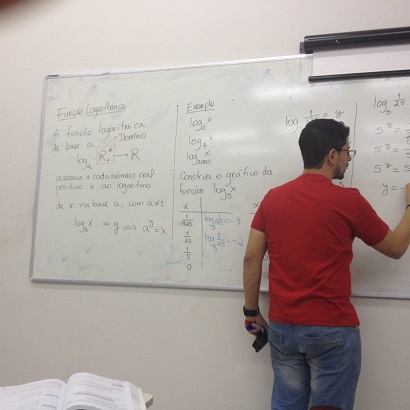 Função Logarítmica
A função logarítmica
de base a Domínio
log_a : R*₊ → R
associa a cada número real
positivo x ao logaritmo
de x na base a, com a≠1
log_a^x = y ⟺ a^y = x
Exemplo
log_2^x
log_3^x
log_1000^x
Construa o gráfico da
função log_5^x
x
1/125 log_5 1/125 = -3
1/25 log_5 1/25 = -2
1/5
0
x
= y
log_5 1/25
5^y =
5^y =
5^y =
y = -